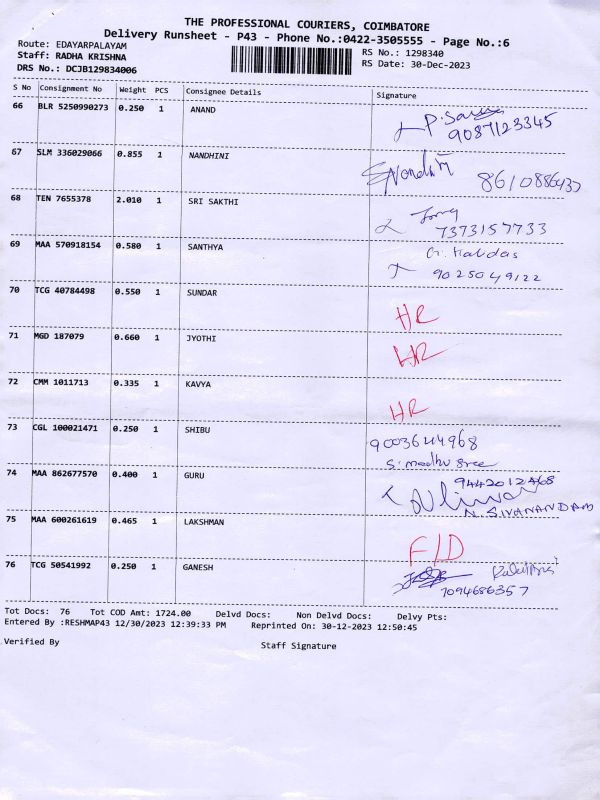 THE PROFESSIONAL COURIERS, COIMBATORE
Delivery Runsheet - P43 - Phone No.:0422-3505555 - Page No.:6
Route: EDAYARPALAYAM
Staff: RADHA KRISHNA
DRS No.: DCJB129834006
RS No.: 1298340
RS Date: 30-Dec-2023
S No Consignment No Weight PCS Consignee Details Signature
66 BLR 5250990273 0.250 1 ANAND
9087123345
67 SLM 336029066 0.855 1 NANDHINI
68 TEN 7655378 2.010 1 SRI SAKTHI
7373157733
69 MAA 570918154 0.580 1 SANTHYA
9025049122
70 TCG 40784498 0.550 1 SUNDAR
HR
71 MGD 187079 0.660 1 JYOTHI
HR
72 CMM 1011713 0.335 1 KAVYA
HR
73 CGL 100021471 0.250 1 SHIBU
9003644968
S. madhu sree
74 MAA 862677570 0.400 1 GURU
9442012468
N. SIVANANDAM
75 MAA 600261619 0.465 1 LAKSHMAN
F/D
76 TCG 50541992 0.250 1 GANESH
7094686357
Tot Docs: 76 Tot COD Amt: 1724.00 Delvd Docs: Non Delvd Docs: Delvy Pts:
Entered By :RESHMAP43 12/30/2023 12:39:33 PM Reprinted On: 30-12-2023 12:50:45
Verified By Staff Signature